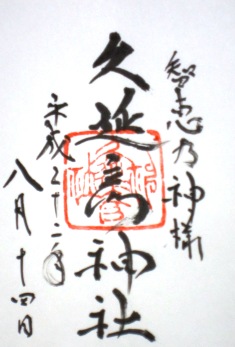 智恵乃神様
久延彦神社
平成二十二年
八月十四日